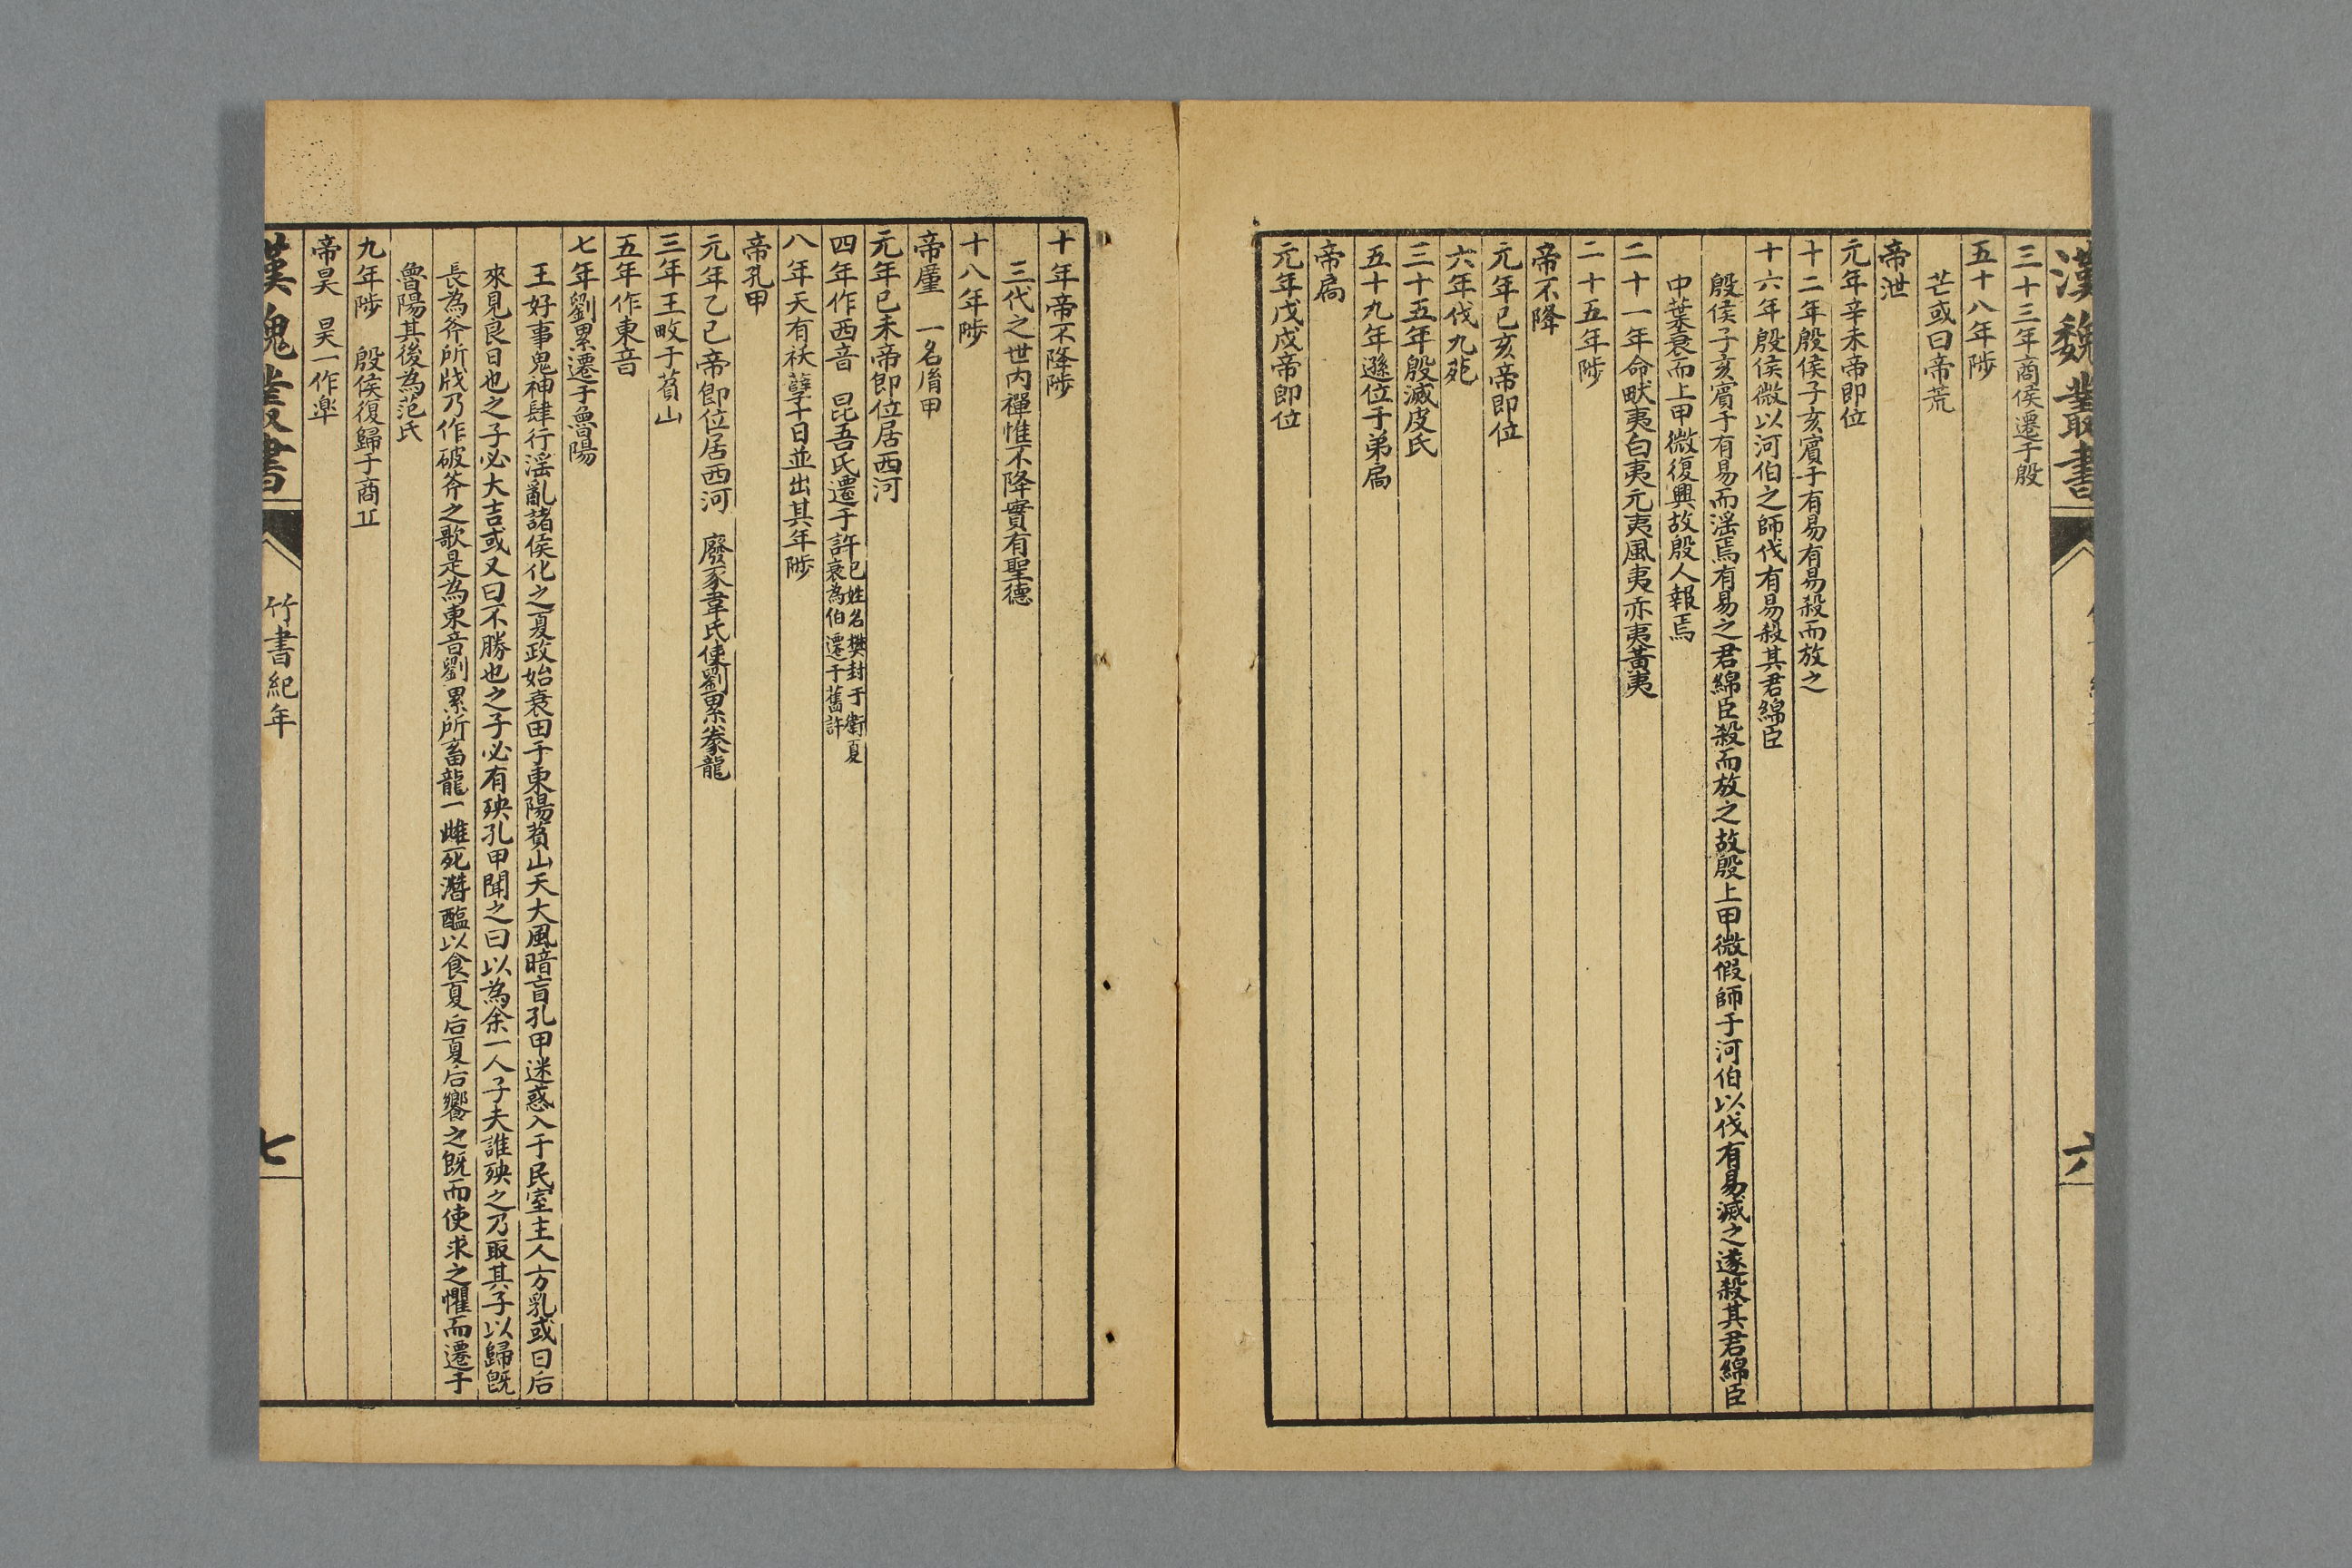 漢魏叢書
六
三十三年商侯遷于殷
五十八年陟
芒或曰帝荒
帝泄
元年辛未帝即位
十二年殷侯子亥賓于有易有易殺而放之
十六年殷侯微以河伯之師伐有易殺其君綿臣
殷侯子亥賓于有易而滛焉有易之君綿臣殺而放之故殷上甲微假師于河伯以伐有易滅之遂殺其君綿臣
中葉衰而上甲微復興故殷人報焉
二十一年命畎夷白夷元夷風夷赤夷黃夷
二十五年陟
帝不降
元年己亥帝即位
六年伐九苑
三十五年殷滅皮氏
五十九年遜位于弟扃
帝扃
元年戊戌帝即位
十年帝不降陟
三代之世内禪惟不降實有聖德
十八年陟
帝廑 一名胤甲
元年己未帝即位居西河
四年作西音 昆吾氏遷于許己姓名樊封于衛夏
衰為伯遷于舊許
八年天有祅孽十日並出其年陟
帝孔甲
元年乙巳帝即位居西河 廢豕韋氏使劉累豢龍
三年王畋于萯山
五年作東音
七年劉累遷于魯陽
王好事鬼神肆行滛亂諸侯化之夏政始衰田于東陽萯山天大風晦盲孔甲迷惑入于民室主人方乳或曰后
來見良日也之子必大吉或又曰不勝也之子必有殃孔甲聞之曰以為余一人子夫誰殃之乃取其子以歸既
長為斧所戕乃作破斧之歌是為東音劉累所畜龍一雌死潛醢以食夏后夏后饗之既而使求之懼而遷于
魯陽其後為范氏
九年陟 殷侯復歸于商丘
帝昊 昊一作臯
漢魏叢書
竹書紀年
七